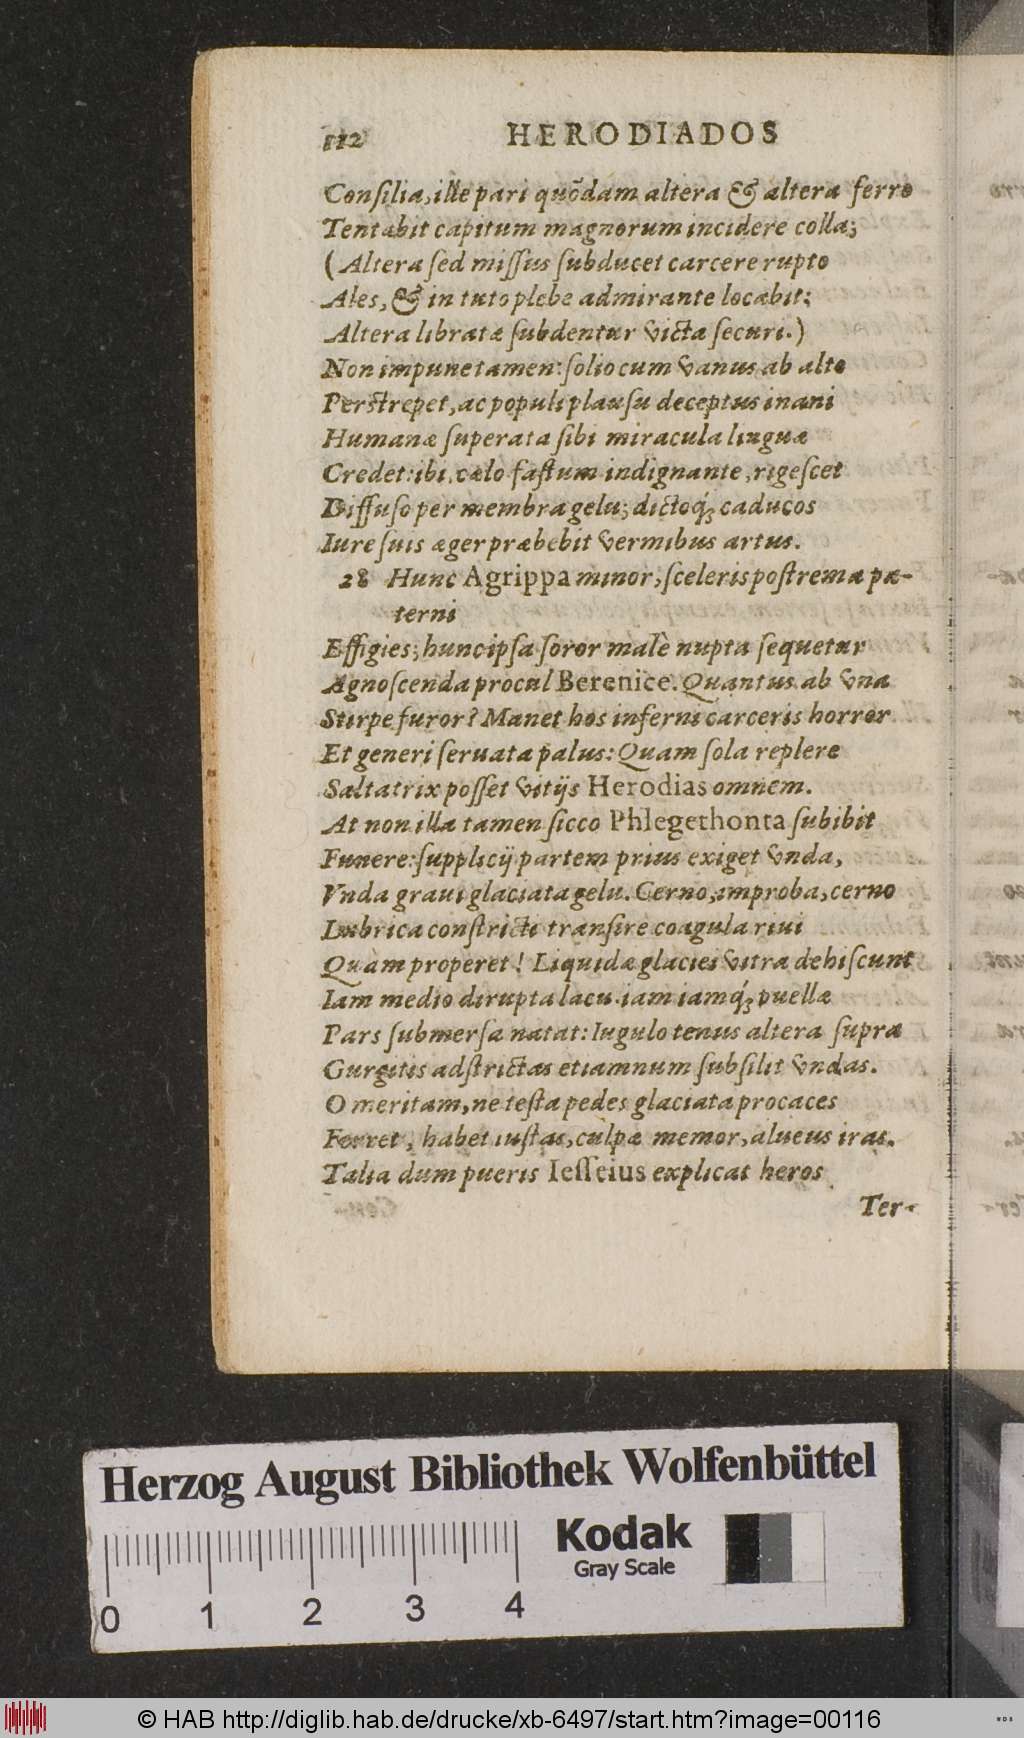 112 HERODIADOS
Conſilia, ille pari quõdam altera & altera ferro
Tentabit capitum magnorum incidere colla;
(Altera ſed miſſus ſubducet carcere rupto
Ales, & in tuto plebe admirante locabit:
Altera libratæ ſubdentur victa ſecuri.)
Non impune tamen: ſolio cum vanus ab alto
Perſtrepet, ac populi plauſu deceptus inani
Humanæ ſuperata ſibi miracula linguæ
Credet: ibi, cælo faſtum indignante, rigeſcet
Diffuſo per membra gelu; dictoq́; caducos
Iure ſuis æger præbebit vermibus artus.
28 Hunc Agrippa minor, ſceleris poſtrema pa-
terni
Effigies; hunc ipſa ſoror malè nupta ſequetur
Agnoſcenda procul Berenice. Quantus ab vna
Stirpe furor? Manet hos inferni carceris horror
Et generi ſeruata palus: Quam ſola replere
Saltatrix poſſet vitijs Herodias omnem.
At non illa tamen ſicco Phlegethonta ſubibit
Funere: ſupplicij partem prius exiget vnda,
Vnda graui glaciata gelu. Cerno, improba, cerno
Lubrica conſtricti tranſire coagula riui
Quam properet! Liquidæ glaciei vitra dehiſcunt
Iam medio dirupta lacu. iam iamq́; puellæ
Pars ſubmerſa natat: Iugulo tenus altera ſupra
Gurgitis adſtrictas etiamnum ſubſilit vndas.
O meritam, ne teſta pedes glaciata procaces
Ferret, habet iuſtas, culpæ memor, alueus iras.
Talia dum pueris Ieſſeius explicat heros
Ter-
Herzog August Bibliothek Wolfenbüttel
Kodak
Gray Scale
0 1 2 3 4
© HAB http://diglib.hab.de/drucke/xb-6497/start.htm?image=00116